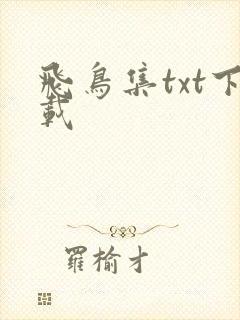 飛鳥集txt下
載
羅榆才